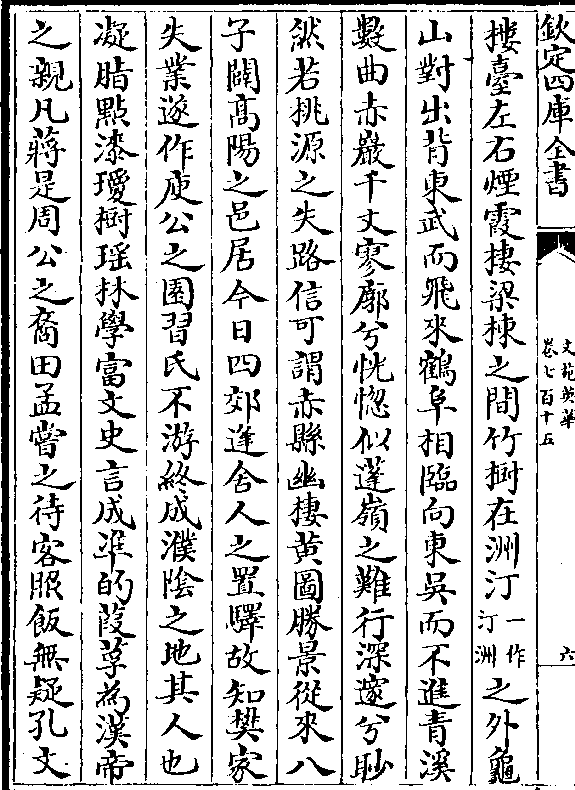 欽定四庫全書
文苑英華
卷七百十五
六
樓臺左右煙霞棲梁棟之間竹樹在洲汀一作汀洲之外龜
山對出背東武而飛來鶴阜相臨向東吳而不進青溪
數曲赤巖千丈寥廓兮恍惚似蓬嶺之難行深邃兮眇
然若挑源之失路信可謂赤縣幽棲黄圖勝景從來八
子闢髙陽之邑居今日四郊逢舍人之置驛故知樊家
失業遂作庾公之園習氏不游終成濮陰之地其人也
凝脂點漆瓊樹瑶林學富文史言成凖的葭莩為漢帝
之親凡蔣是周公之裔田孟嘗之待客照飯無疑孔文